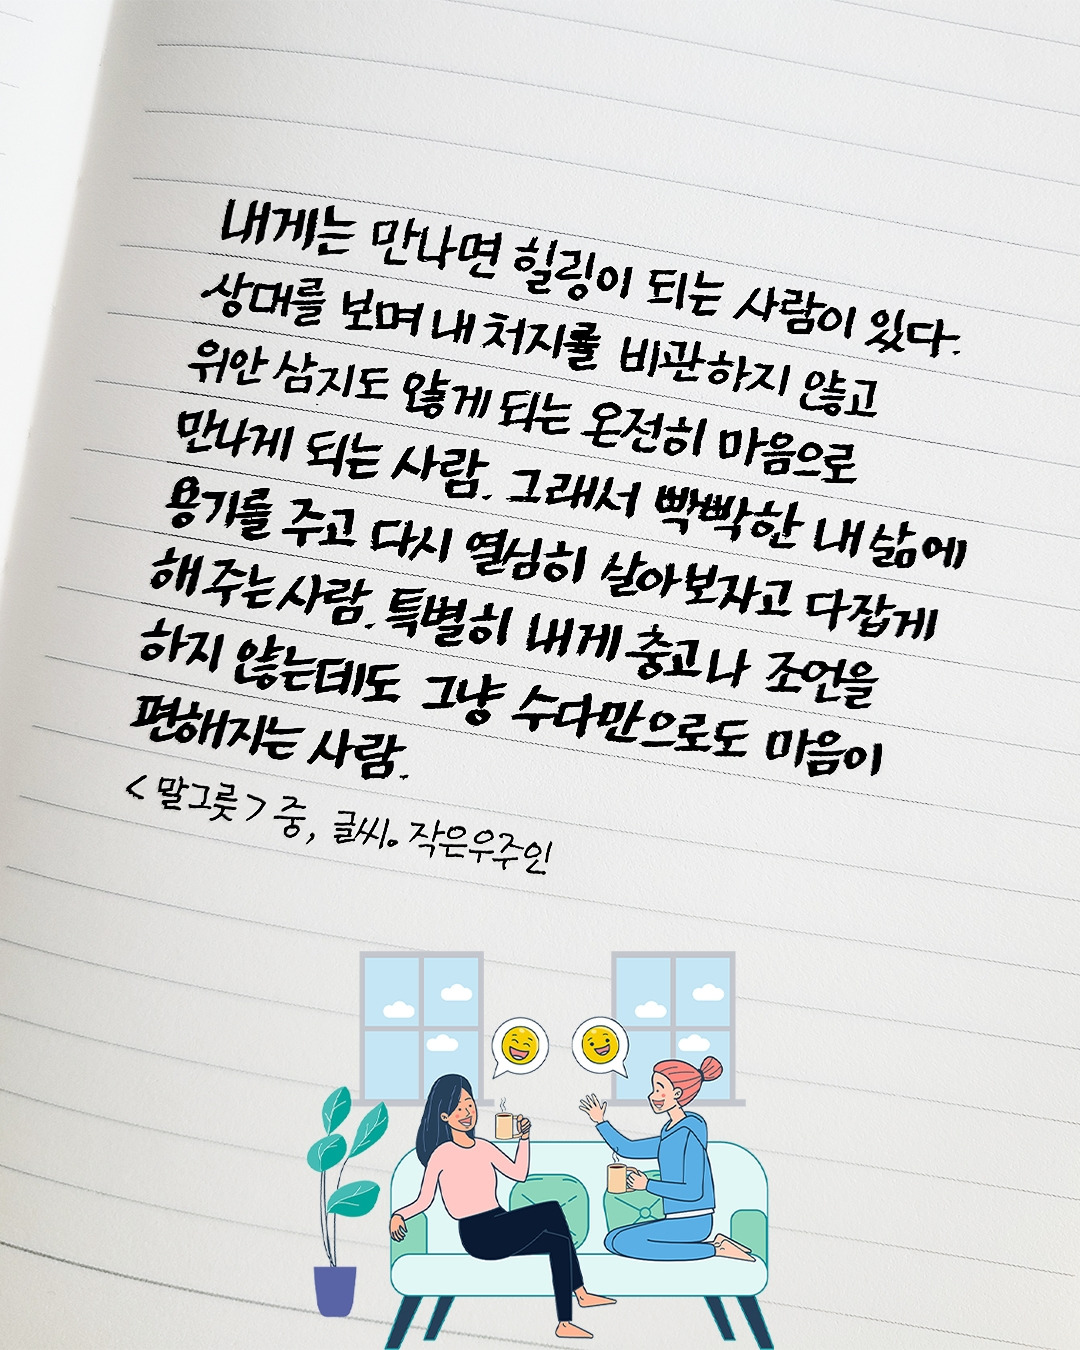 내게는 만나면 힐링이 되는 사람이 있다.
상대를 보며 내 처지를 비관하지 않고
위안 삼지도 않게 되는 온전히 마음으로
만나게 되는 사람. 그래서 빡빡한 내 삶에
용기를 주고 다시 열심히 살아보자고 다잡게
해 주는 사람. 특별히 내게 충고나 조언을
하지 않는데도 그냥 수다만으로도 마음이
편해지는 사람.
<말그릇> 중, 글씨. 작은우주인